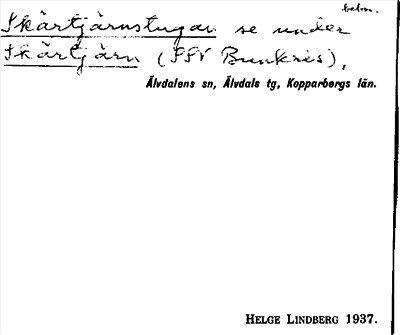 beton.
Skärtjärnstugan se under
Skärtjärn (SSV Bunkris),
Älvdalens sn, Älvdals tg, Kopparbergs län.
HELGE LINDBERG 1937.